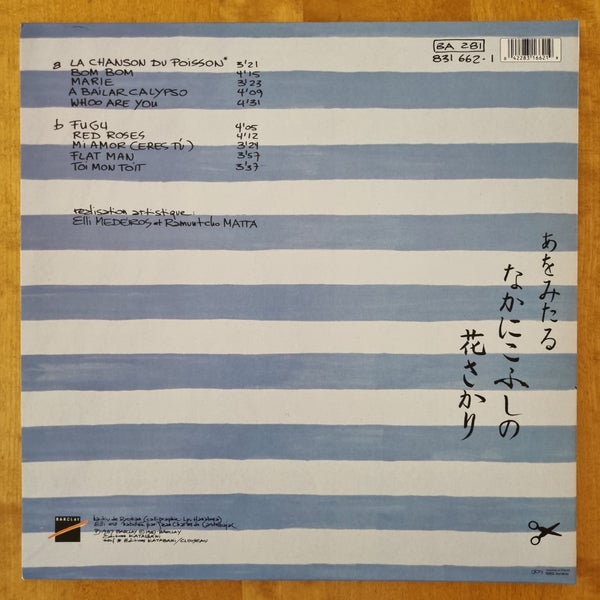 a LA CHANSON DU POISSON* 3'21
BOM BOM 4'15
MARIE 3'23
A BAILAR CALYPSO 4'09
WHOO ARE YOU 4'31
b FUGU 4'05
RED ROSES 4'12
MI AMOR (ERES TÚ) 3'29
FLAT MAN 3'57
TOI MON TOIT 3'37
réalisation artistique:
Elli MEDEIROS et Ramuntcho MATTA
BA 281
831 662-1
あをみたる
なかにこふしの
花さかり
BARCLAY